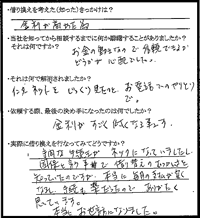 ・借り換えを考えた(知った)きっかけは？
金利が高かった為
・当社を知ってから相談するまでに何か躊躇することがありましたか？
それは何ですか？
お金の事なので信頼できるか
どうかが
・それは何で解消されましたか？
インターネットをじっくり見たのと、お電話でのやりとり
で。
・依頼する際、最後の決め手になったのは何でしたか？
金利がすごく低くなります。
・実際に借り換えを行なってみてどうですか？
面倒な手続きがネックになっていましたし、
借り替えできれば
本当に毎月の支払が安く
なるし、手続も楽だったので、ありがたく
思っています。
本当にお世話になりました。